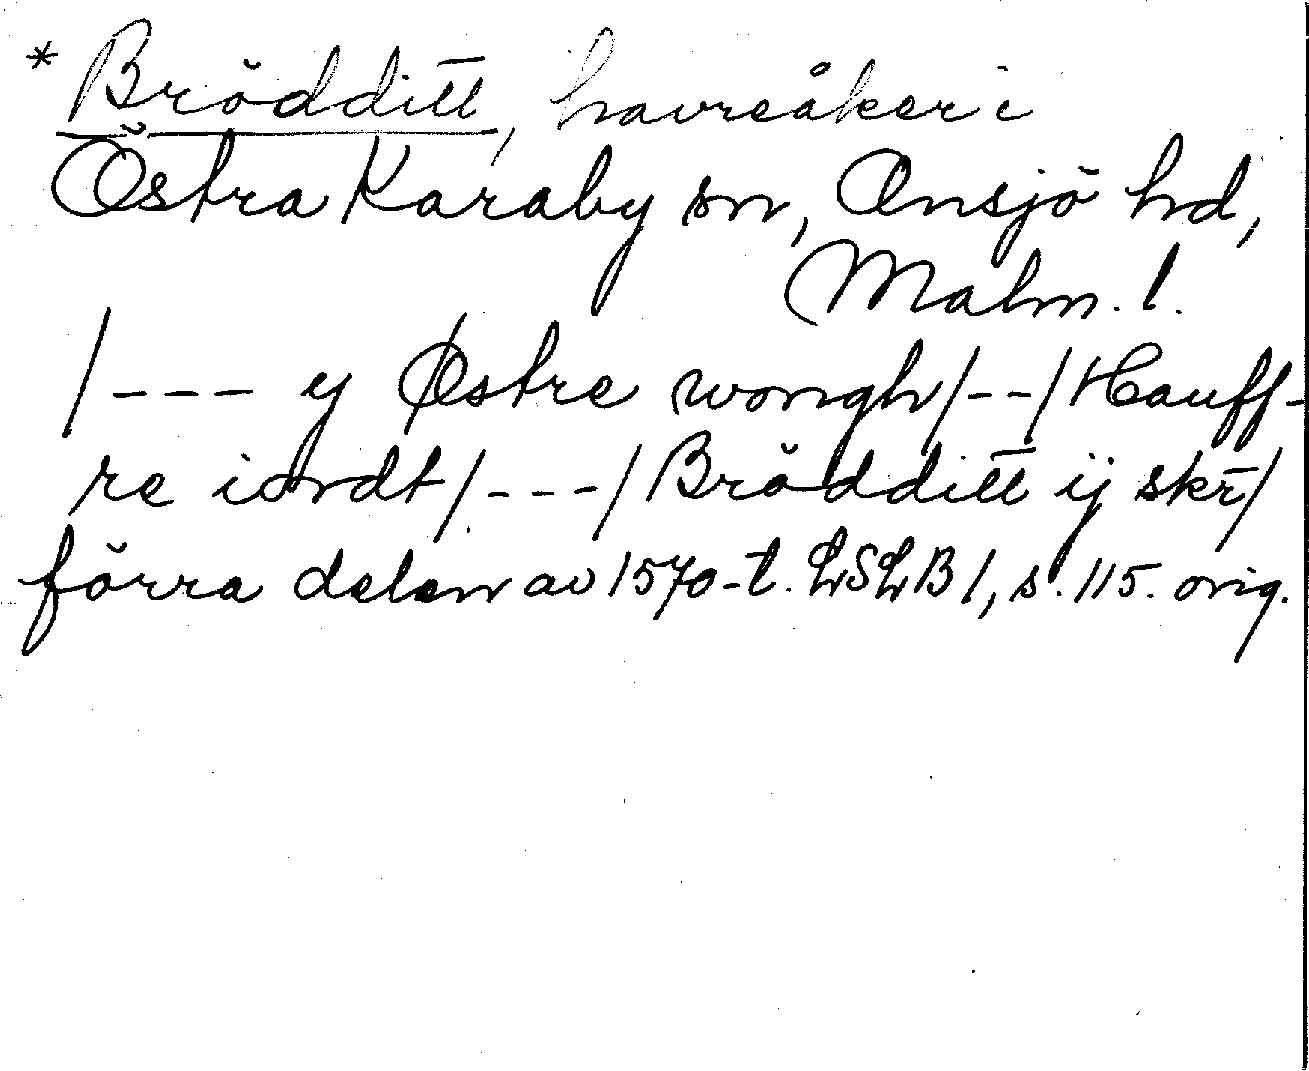 * Brödditt, havreåker i
Östra Karaby sn, Onsjö hd,
Malm. l.
/--- y Østre wongh/--/Hauff-
re iordt/---/Brödditt ij skr̄/
förra delen av 1570-t. LSLB 1, s. 115. orig.